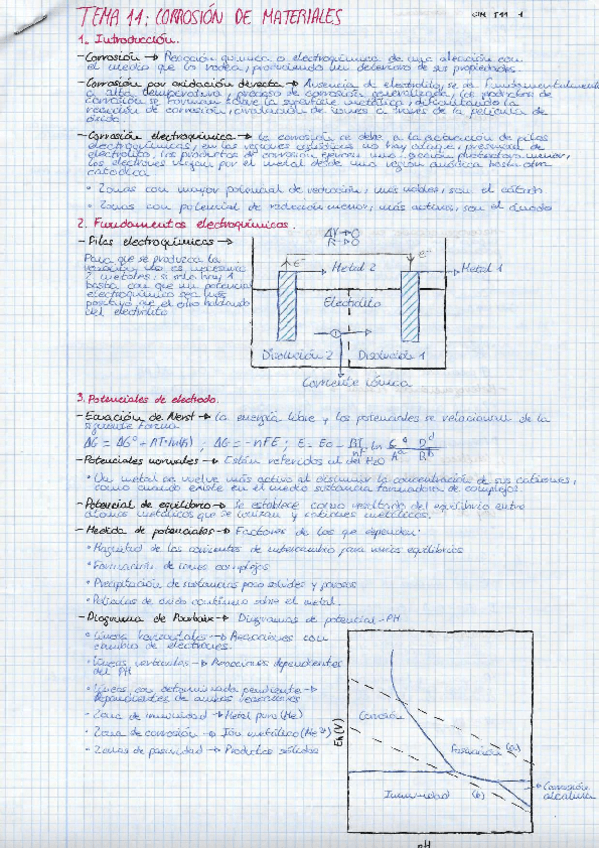 TEMA 11: CORROSIÓN DE MATERIALES
CIM T11 1
1. Introducción.
- Corrosión → Reacción química o electroquímica de una aleación con
el medio que la rodea, produciendo un deterioro de sus propiedades.
- Corrosión por oxidación directa → Ausencia de electrolito, se da fundamentalmente
a alta temperatura, proceso de corrosión generalizada, los productos de
corrosión se forman sobre la superficie metálica, dificultando la
reacción de corrosión, circulación de iones a través de la película de
óxido.
- Corrosión electroquímica → La corrosión se debe a la actuación de pilas
electroquímicas, en las regiones catódicas no hay ataque, presencia de
electrolito, los productos de corrosión ejercen una acción protectora menor,
los electrones viajan por el metal desde una región anódica hasta otra
catódica.
• Zonas con mayor potencial de reducción, más nobles, son el cátodo
• Zonas con potencial de reducción menor, más activas, son el ánodo
2. Fundamentos electroquímicos.
- Pilas electroquímicas →
Para que se produzca la
reacción no es necesario
2 metales, si solo hay 1
basta con que un potencial
electroquímico sea más
positivo que el otro
del electrolito
ΔV → 0
R → 0
e⁻
e⁻
Metal 2
Metal 1
Electrolito
Disolución 2
Disolución 1
Corriente iónica
3. Potenciales de electrodo.
- Ecuación de Nerst → La energía libre y los potenciales se relacionan de la
siguiente forma
- Potenciales normales → Están referidos al del H₂O
• Un metal se vuelve más activo al disminuir la concentración de sus cationes,
como cuando existe en el medio sustancia formadora de complejos
- Potencial de equilibrio → Se establece como resultado del equilibrio entre
átomos metálicos que se ionizan y cationes metálicos.
- Medida de potenciales → Factores de los que dependen:
• Magnitud de las corrientes de intercambio para varios equilibrios
• Formación de iones complejos
• Precipitación de sustancias poco solubles y porosas
• Películas de óxido continuas sobre el metal.
- Diagrama de Pourbaix → Diagramas de potencial-PH
• Líneas horizontales → Reacciones con
cambio de electrones.
• Líneas verticales → Reacciones dependientes
del PH
• Líneas con determinada pendiente →
Dependientes de ambas reacciones
• Zona de inmunidad → Metal puro (Me)
• Zona de corrosión → Ión metálico
• Zonas de pasividad → Productos sólidos
Eh (V)
Corrosión
Pasivación
(a)
Inmunidad
(b)
Corrosión
alcalina
pH